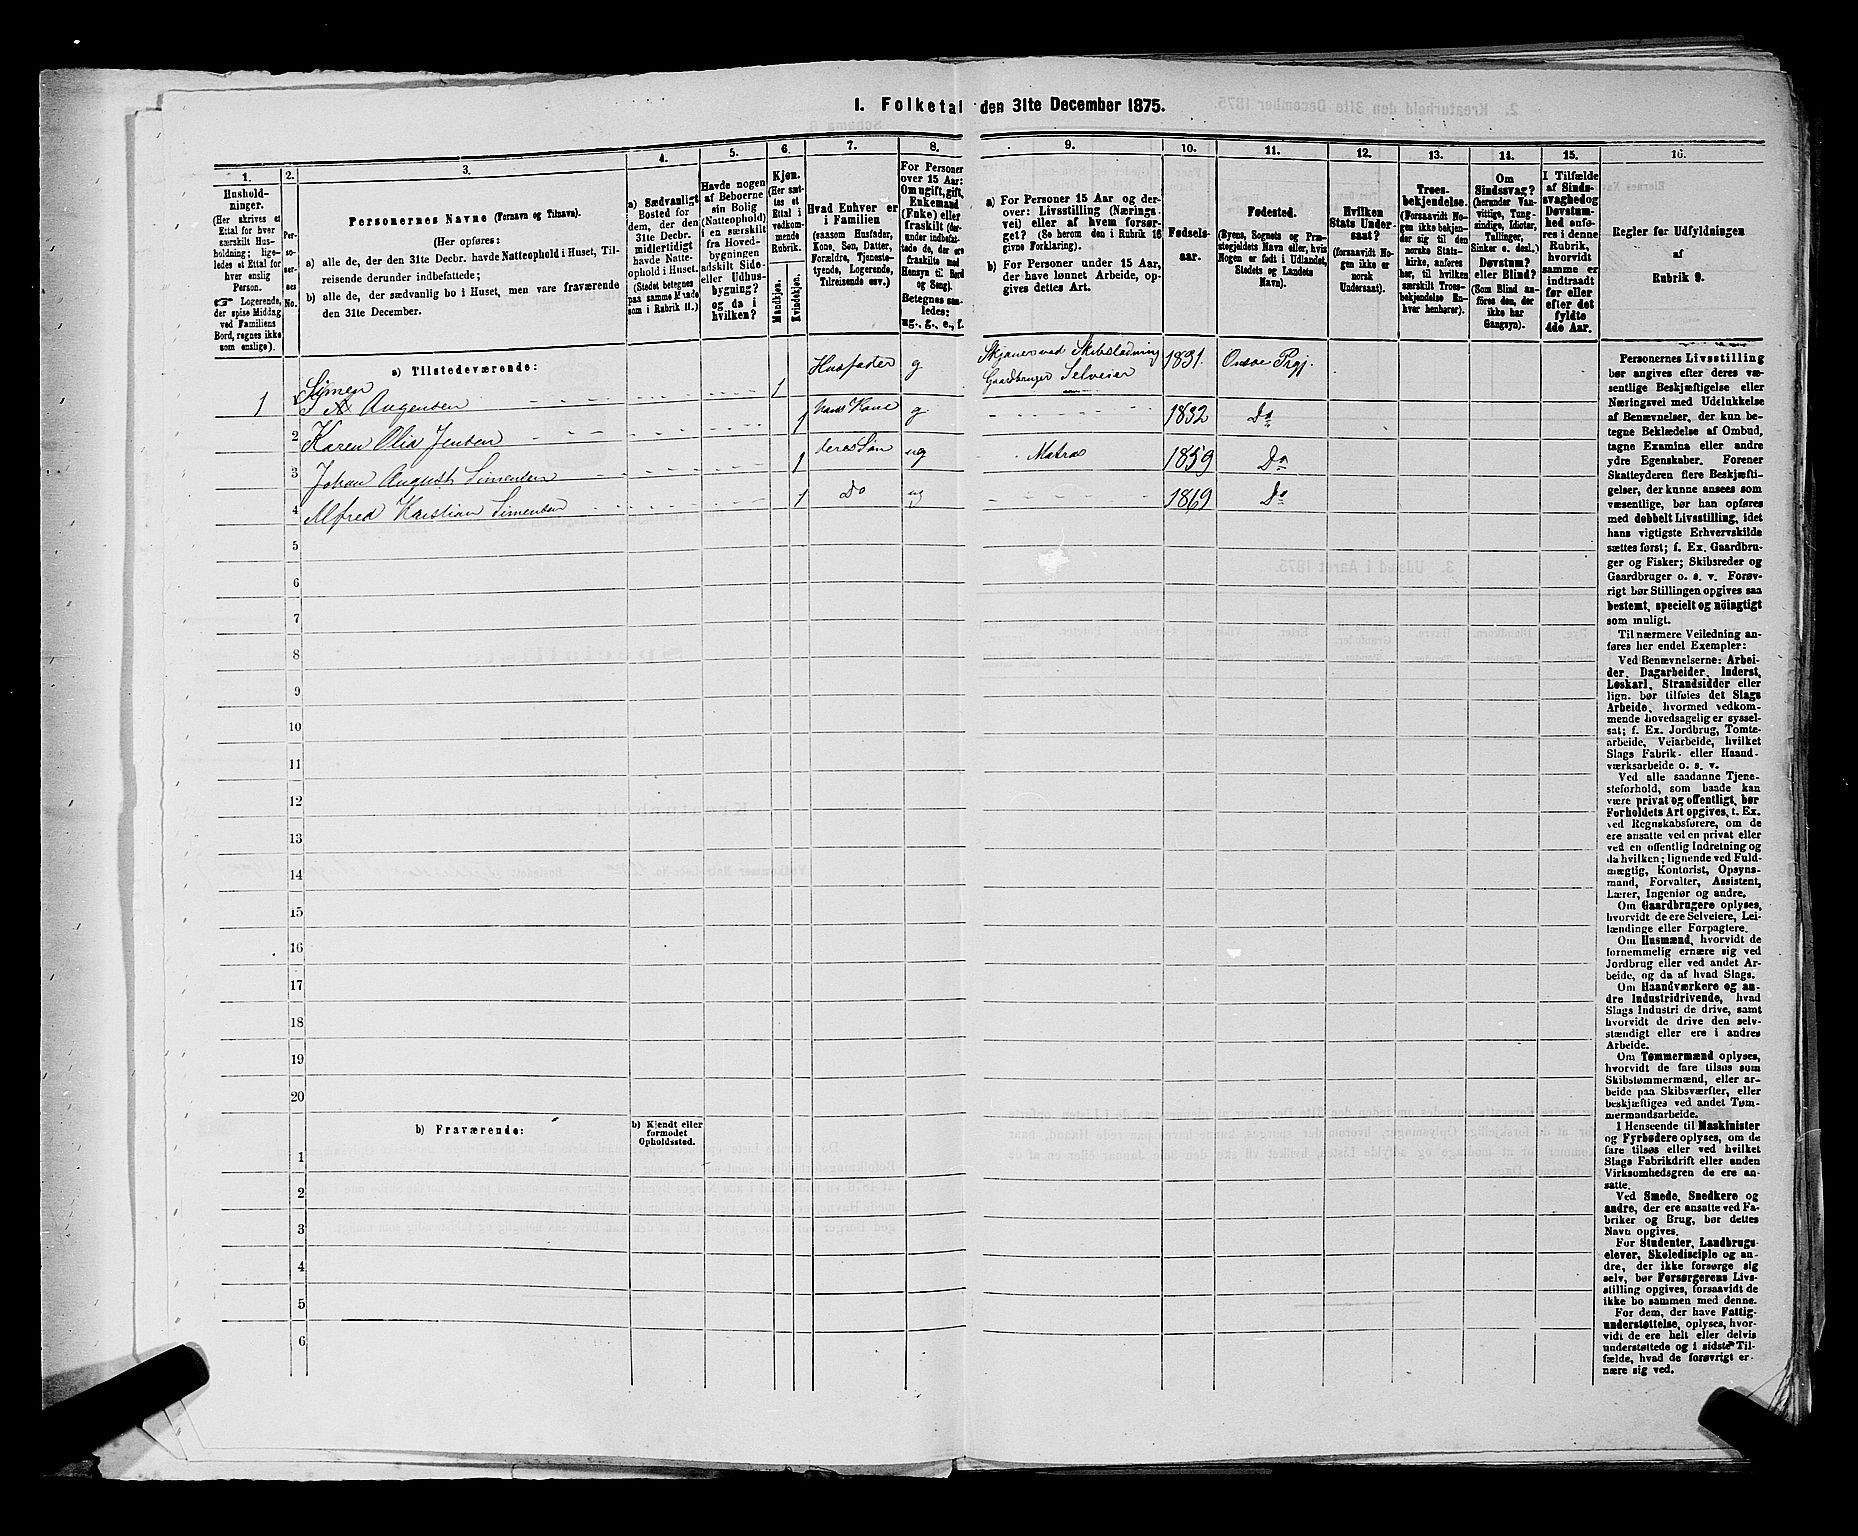 1. Folketal den 31te December 1875.
1.
2.
3.
4.
5.
6.
7.
8.
9.
10.
11.
12.
13.
14.
15.
16.
Hushold-
ninger.
(Her skrives et
Ettal for hver
særskilt Hus-
holdning; lige-
ledes et Ettal for
hver enslig
Person.
☞ Logerende,
der spise Middag
ved Familiens
Bord, regnes ikke
som enslige).
Per-
so-
ner-
nes
No.
Personernes Navne (Fornavn og Tilnavn).
(Her opføres:
a) alle de, der den 31te Decbr. havde Natteophold i Huset, Til-
reisende derunder indbefattede;
b) alle de, der sædvanlig bo i Huset, men vare fraværende
den 31te December.
a) Sædvanligt
Bosted for
dem, der den
31te Decbr.
midlertidigt
havde Natte-
ophold i Huset.
(Stedet betegnes
paa samme Maade
som i Rubrik 11.)
Havde nogen
af Beboerne
sin Bolig
(Natteophold)
i en særskilt
fra Hoved-
bygningen
adskilt Side-
eller Udhus-
bygning?
og da i
hvilken?
Kjøn.
(Her sæt-
tes et
Ettal i
vedkom-
mende
Rubrik.
Mandkjøn.
Kvindekjøn.
Hvad Enhver er
i Familien
(saasom Husfader,
Kone, Søn, Datter,
Forældre, Tjeneste-
tyende, Logerende,
Tilreisende osv.)
For Personer
over 15 Aar:
Om ugift, gift,
Enkemand
(Enke) eller
fraskilt (der-
under indbefat-
tede de, der ere
fraskilte med
Hensyn til Bord
og Seng).
Betegnes saa-
ledes:
ug., g., e., f.
a) For Personer 15 Aar og der-
over: Livsstilling (Nærings-
vei) eller af hvem forsør-
get? (Se herom den i Rubrik 16
givne Forklaring).
b) For Personer under 15 Aar,
der have lønnet Arbeide, op-
gives dettes Art.
Fødsels-
aar.
Fødested.
(Byens, Sognets og Præ-
stegjeldets Navn eller, hvis
Nogen er født i Udlandet,
Stedets og Landets
Navn).
Hvilken
Stats Under-
saat?
(forsaavidt No-
gen ikke er
norsk
Undersaat).
Troes-
bekjendelse.
(Forsaavidt No-
gen ikke bekjen-
der sig til den
norske Stats-
kirke, anføres
her, til hvilken
særskilt Troes-
bekjendelse En-
hver henhører).
Om
Sindssvag?
(herunder Van-
vittige, Tung-
sindige, Idioter,
Tullinger,
Sinker o. desl.)
Døvstum?
eller Blind?
(Som Blind an-
føres den, der
ikke har
Gangsyn).
I Tilfælde
af Sinds-
svaghed og
Døvstum-
hed anfø-
res i denne
Rubrik,
hvorvidt
samme er
indtraadt
før eller
efter det
fyldte
4de Aar.
Regler for Udfyldningen
af
Rubrik 9.
a) Tilstedeværende:
1 Simen A Augensen 1 Husfader g Skjauer ved Skibsladning 1831 Onsøe Prgj.
Gaardbruger Selveier
2 Karen Olia Jensen 1 hans Kone g 1832 Do
3 Johan August Simensen 1 deres Søn ug Matros 1859 Do
4 Alfred Kristian Simensen 1 Do ug 1869 Do
5
6
7
8
9
10
11
12
13
14
15
16
17
18
19
20
b) Fraværende:
b) Kjendt eller
formodet
Opholdssted.
1
2
3
4
5
6
Personernes Livsstilling
bør angives efter deres væ-
sentlige Beskjæftigelse eller
Næringsvei med Udelukkelse
af Benævnelser, der kun be-
tegne Beklædelse af Ombud,
tagne Examina eller andre
ydre Egenskaber. Forener
Skatteyderen flere Beskjæfti-
gelser, der kunne ansees som
væsentlige, bør han opføres
med dobbelt Livsstilling, idet
hans vigtigste Erhvervskilde
sættes først; f. Ex. Gaardbru-
ger og Fisker; Skibsreder og
Gaardbruger o. s. v. Forøv-
rigt bør Stillingen opgives saa
bestemt, specielt og nöiagtigt
som muligt.
Til nærmere Veiledning an-
føres her endel Exempler:
Ved Benævnelserne: Arbei-
der, Dagarbeider, Inderst,
Løskarl, Strandsidder eller
lign. bør tilføies det Slags
Arbeide, hvormed vedkom-
mende hovedsagelig er syssel-
sat; f. Ex. Jordbrug, Tomte-
arbeide, Veiarbeide, hvilket
Slags Fabrik- eller Haand-
værksarbeide o. s. v.
Ved alle saadanne Tjene-
steforhold, som baade kan
være privat og offentligt, bør
Forholdets Art opgives, t. Ex.
ved Regnskabsførere, om de
ere ansatte ved en privat eller
ved en offentlig Indretning og
da hvilken; lignende ved Fuld-
mægtig, Kontorist, Opsyns-
mand, Forvalter, Assistent,
Lærer, Ingeniør og andre.
Om Gaardbrugere oplyses,
hvorvidt de ere Selveiere, Lei-
lændinge eller Forpagtere.
Om Husmænd, hvorvidt de
fornemmelig ernære sig ved
Jordbrug eller ved andet Ar-
beide, og da af hvad Slags.
Om Haandværkere og an-
dre Industridrivende, hvad
Slags Industri de drive, samt
hvorvidt de drive den selv-
stændigt eller ere i andres
Arbeide.
Om Tømmermænd oplyses,
hvorvidt de fare tilsøs som
Skibstømmermænd, eller ar-
beide paa Skibsværfter, eller
beskjæftiges ved andet Tøm-
mermandsarbeide.
I Henseende til Maskinister
og Fyrbødere oplyses, om de
fare tilsøs eller ved hvilket
Slags Fabrikdrift eller anden
Virksomhedsgren de ere an-
satte.
Ved Smede, Snedkere og
andre, der ere ansatte ved Fa-
briker og Brug, bør dettes
Navn opgives.
For Studenter, Landbrugs-
elever, Skoledisciple og an-
dre, der ikke forsørge sig
selv, bør Forsørgerens Livs-
stilling opgives, forsaavidt de
ikke bo sammen med denne.
For dem, der have Fattig-
understøttelse, oplyses, hvor-
vidt de ere helt eller delvis
understøttede og i sidste Til-
fælde, hvad de forøvrigt er-
nære sig ved.